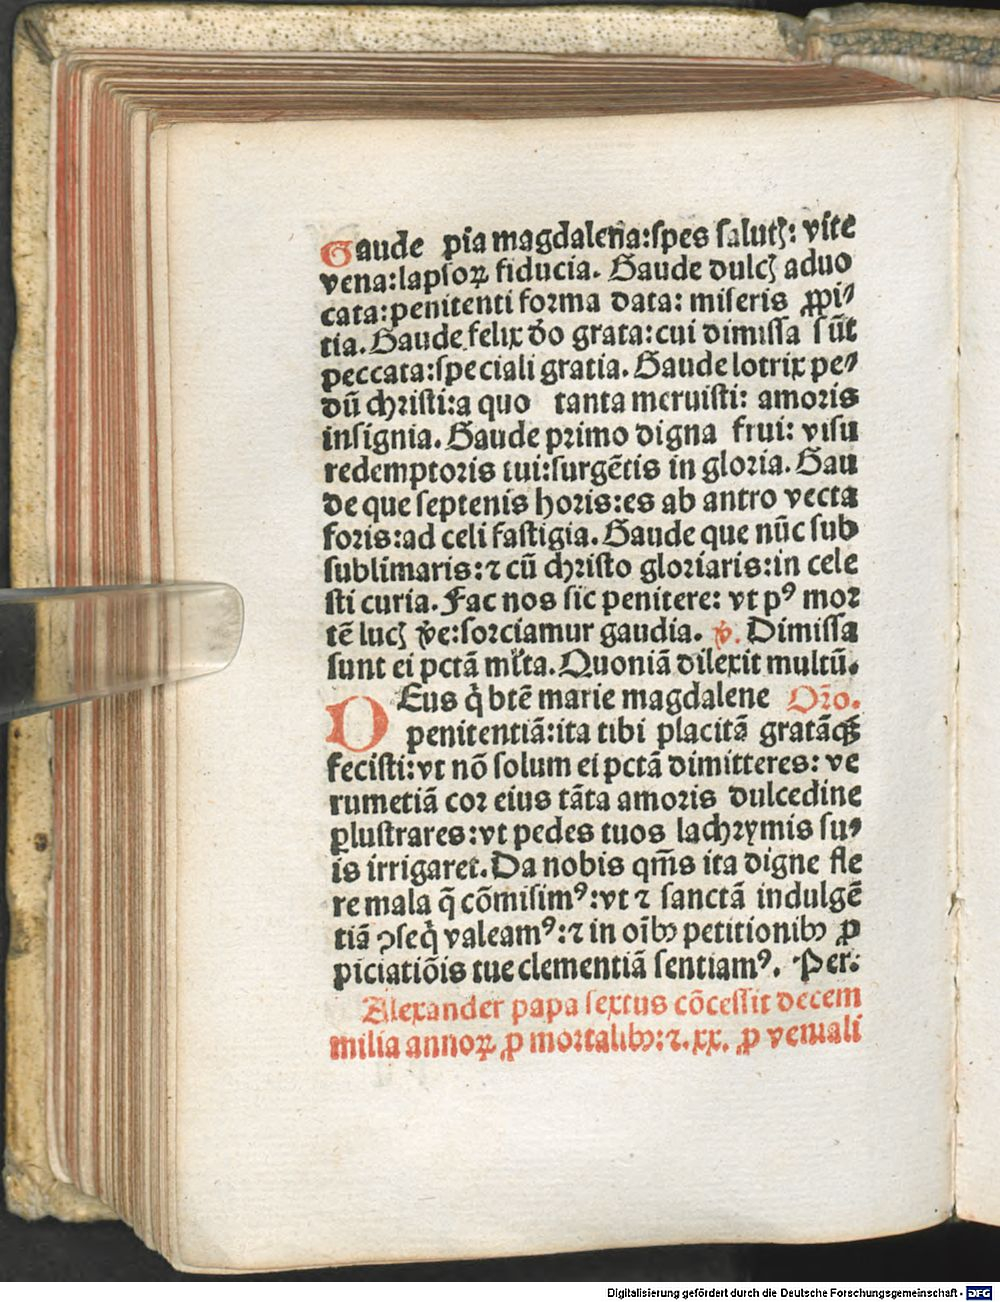 Gaude pia magdalena:spes salutꝫ: vite
vena:lapsoꝝ fiducia. Gaude dulcꝫ aduo
cata:penitenti forma data: miseris ꝓpi⸗
tia. Gaude felix deo grata:cui dimissa sūt
peccata:speciali gratia. Gaude lotrix pe⸗
dū christi:a quo tanta meruisti: amoris
insignia. Gaude primo digna frui: visu
redemptoris tui:surgētis in gloria. Gau
de que septenis horis:es ab antro vecta
foris:ad celi fastigia. Gaude que nūc sub
sublimaris:⁊ cū christo gloriaris:in cele
sti curia. Fac nos sic penitere: vt pꝰ mor
tē lucꝫ :sorciamur gaudia. ℣. Dimissa
sunt ei pctā ml̄ta. Quoniā dilexit multū.
DEus q̇ btē marie magdalene Oro̅.
penitentiā:ita tibi placitā gratāqꝫ
fecisti:vt nō solum ei pctā dimitteres: ve
rumetiā cor eius tāta amoris dulcedine
ꝑlustrares:vt pedes tuos lachrymis su⸗
is irrigaret. Da nobis qm̄s ita digne fle
re mala q̄ cōmisimꝰ:vt ⁊ sanctā indulgē
tiā ꝯseq̇ valeamꝰ:⁊ in oībꝫ petitionibꝫ ꝓ
piciatiōis tue clementiā sentiamꝰ. Per.
Alexander papa sextus cōcessit decem
milia annoꝝ ꝓ mortalibꝫ:⁊.xx. ꝓ veniali
Digitalisierung gefördert durch die Deutsche Forschungsgemeinschaft - DFG